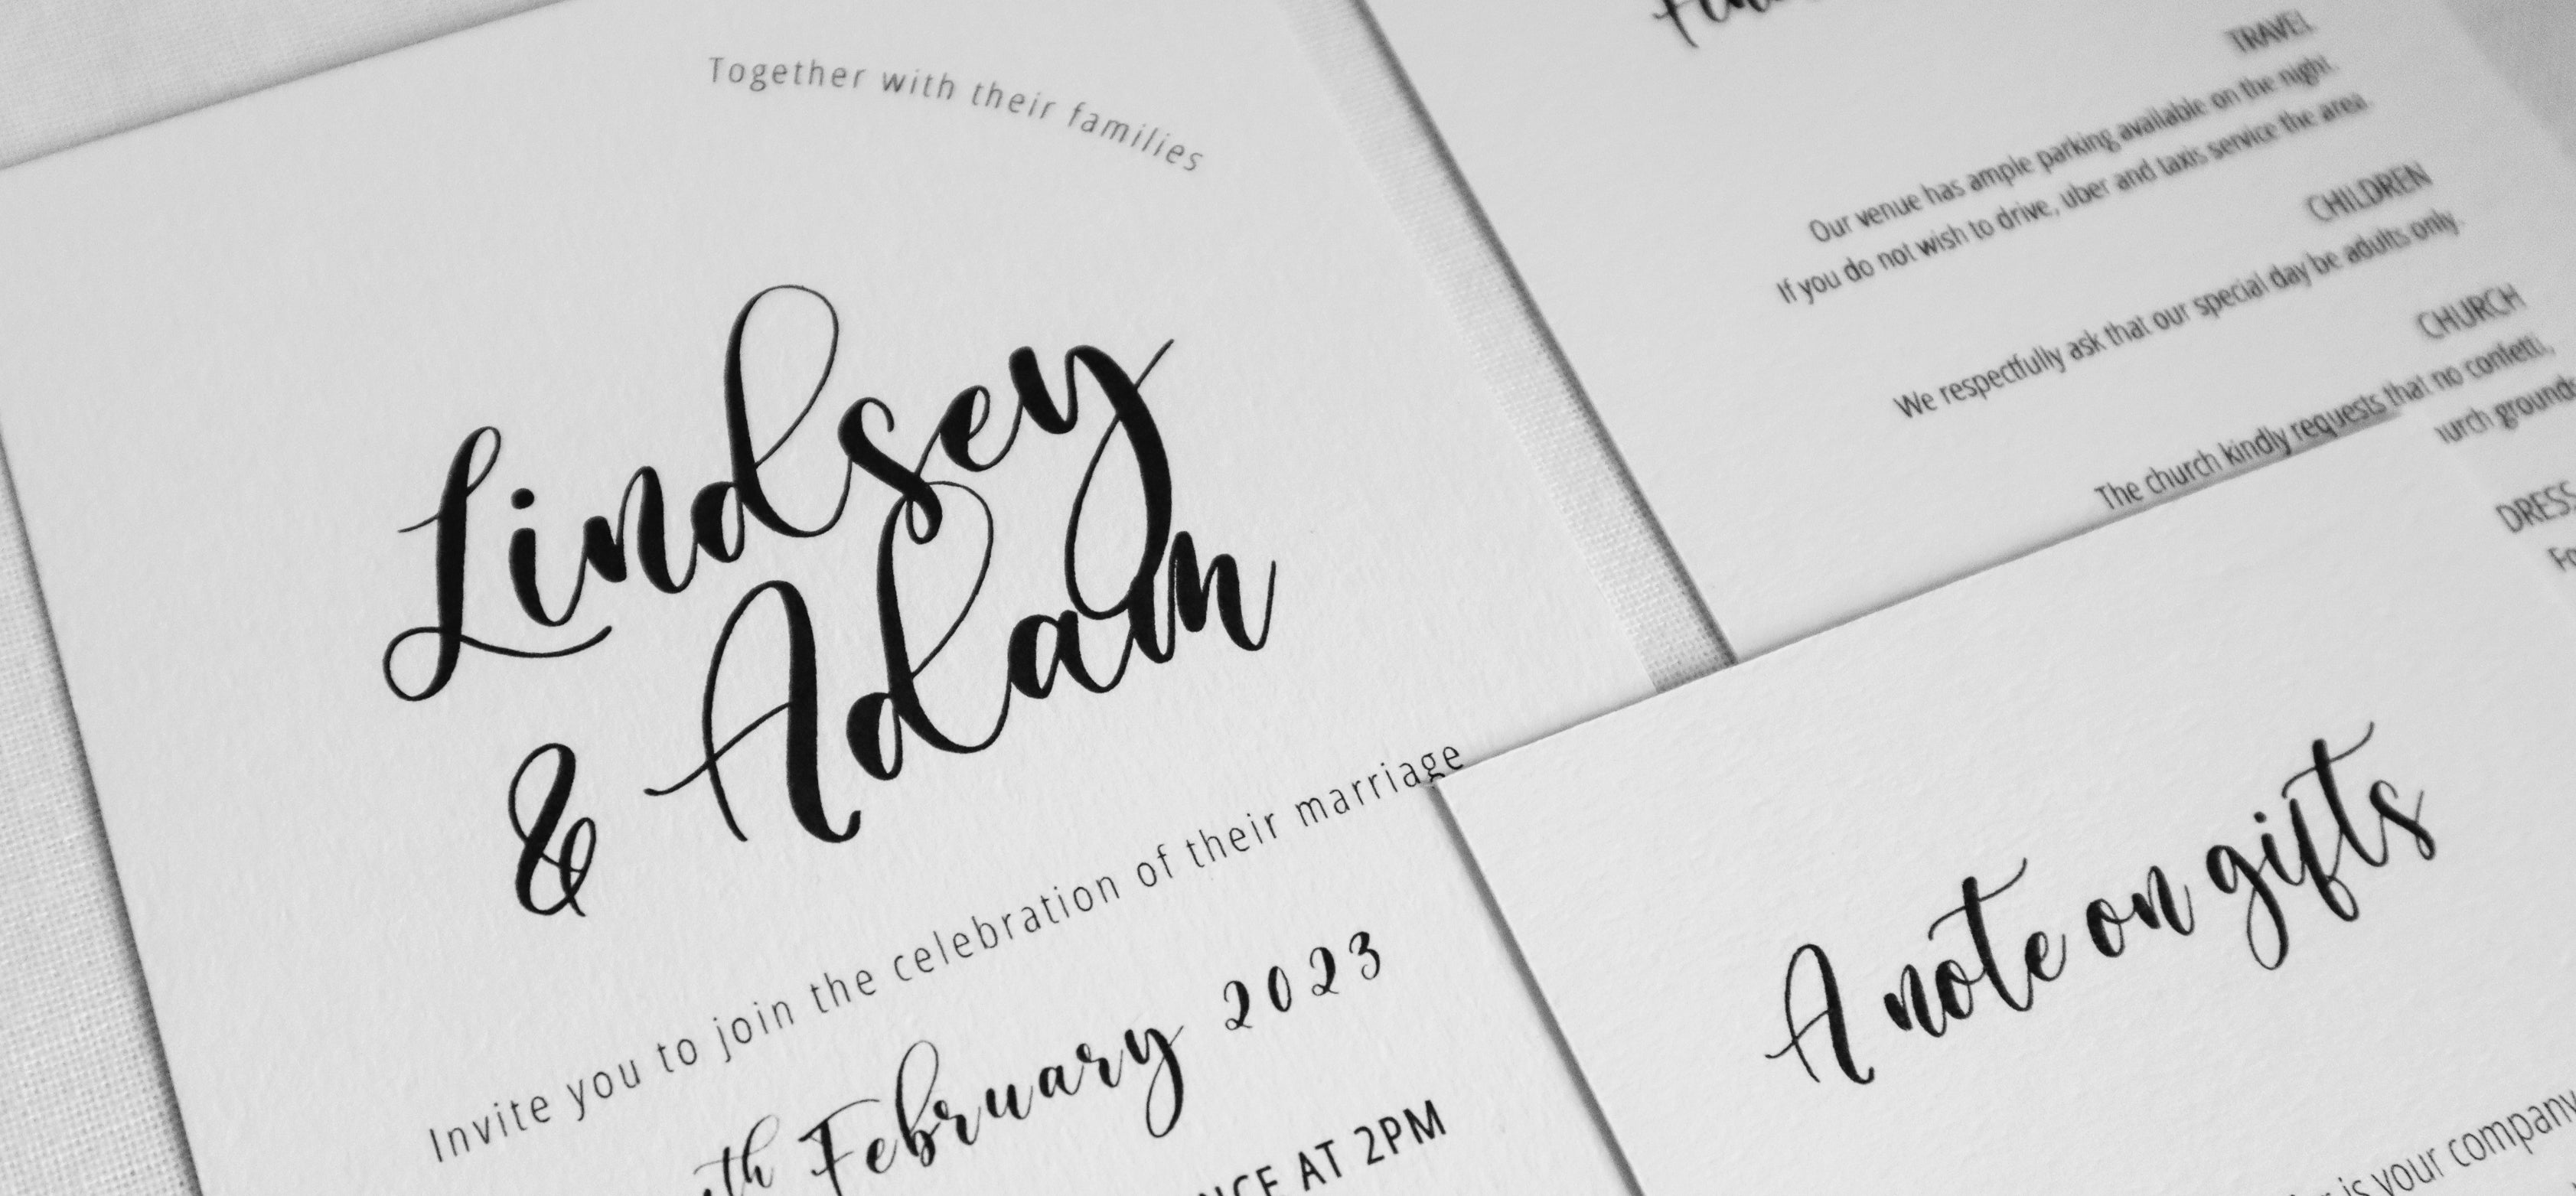 Together with their families
Lindsey
& Adam
Invite you to join the celebration of their marriage
th February 2023
AT 2PM
TRAVEL
Our venue has ample parking available on the night.
If you do not wish to drive, uber and taxis service the area.
CHILDREN
We respectfully ask that our special day be adults only.
CHURCH
The church kindly requests that no confetti,
grounds
DRESS
A note on gifts
is your company